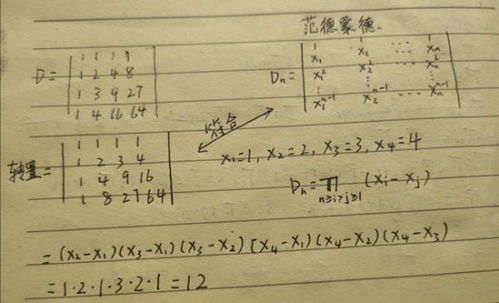 范德蒙德.
D = | 1 1 1 1 |
| 1 2 4 8 |
| 1 3 9 27 |
| 1 4 16 64 |
Dn = | 1 1 ... 1 |
| x₁ x₂ ... xₙ |
| x₁² x₂² ... xₙ² |
| ⋮ ⋮ ⋮ |
| x₁ⁿ⁻¹ x₂ⁿ⁻¹ ... xₙⁿ⁻¹ |
符合
转置 = | 1 1 1 1 |
| 1 2 3 4 |
| 1 4 9 16 |
| 1 8 27 64 |
x₁=1, x₂=2, x₃=3, x₄=4
Dn = ∏ (xi - xj)
n≥i>j≥1
= (x₂-x₁)(x₃-x₁)(x₃-x₂)(x₄-x₁)(x₄-x₂)(x₄-x₃)
= 1·2·1·3·2·1 = 12